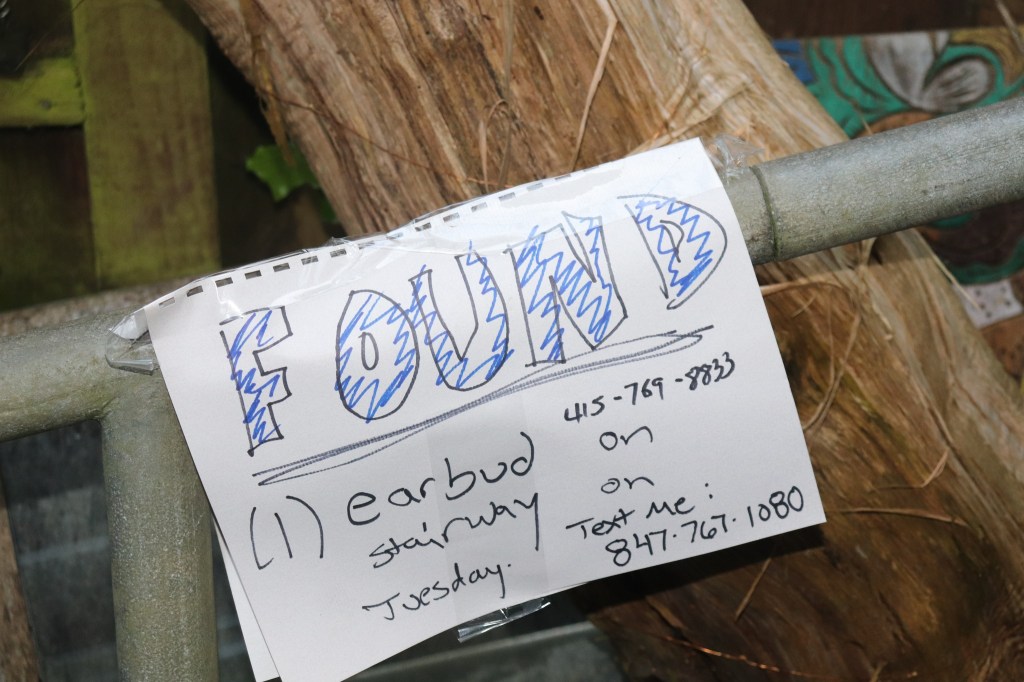 FOUND
415-769-8833
(1) earbud on
stairway on
Tuesday. Text Me:
847.767.1080